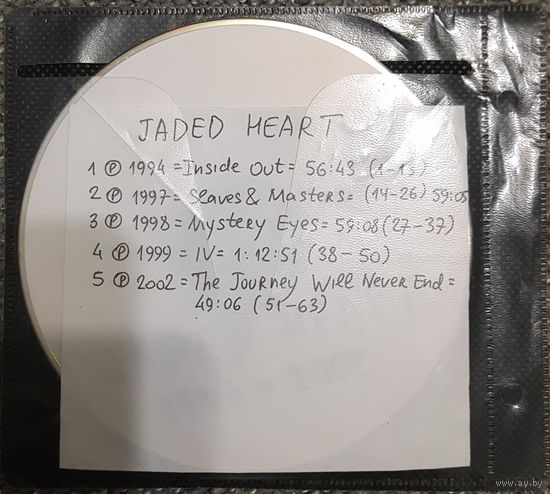 JADED HEART
1 ℗ 1994 = Inside Out = 56:43 (1-13)
2 ℗ 1997 = Slaves & Masters = (14-26) 59:05
3 ℗ 1998 = Mystery Eyes = 59:08 (27-37)
4 ℗ 1999 = IV = 1:12:51 (38-50)
5 ℗ 2002 = The Journey Will Never End =
49:06 (51-63)
www.ay.by